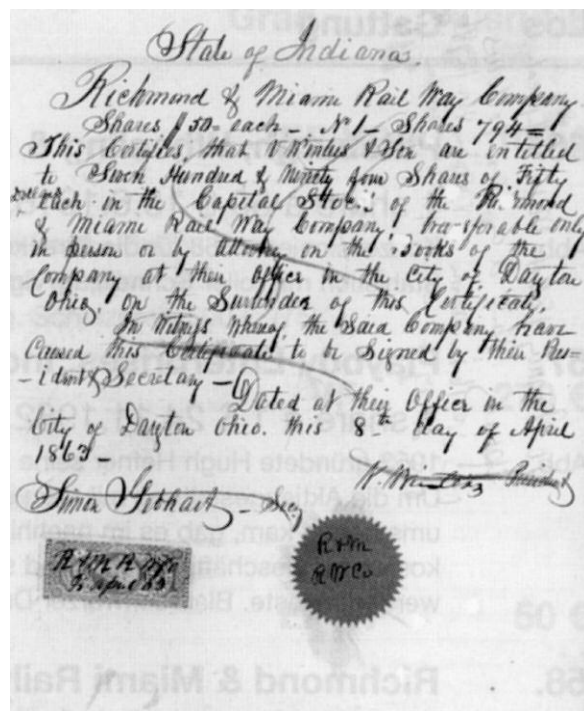 State of Indiana.
Richmond & Miami Rail Way Company
Shares $50= each - No 1 - Shares 794=
This Certifies, that V Winters & Son are entitled
to Seven Hundred & Ninety four Shares of Fifty
Dollars each in the Capital Stock of the Richmond
& Miami Rail Way Company, transferable only
in person or by attorney on the Books of the
Company at their Office in the City of Dayton
Ohio, on the Surrender of this Certificate,
In Witness Whereof the Said Company have
Caused this Certificate to be Signed by their Pres=
-ident & Secretary - Dated at their Office in the
City of Dayton Ohio. this 8th day of April
1863 -
President
Simon Gebhart - Secy
R & M R W Co
8 April 63
R & M
R W Co
Richmond & Miami Rail